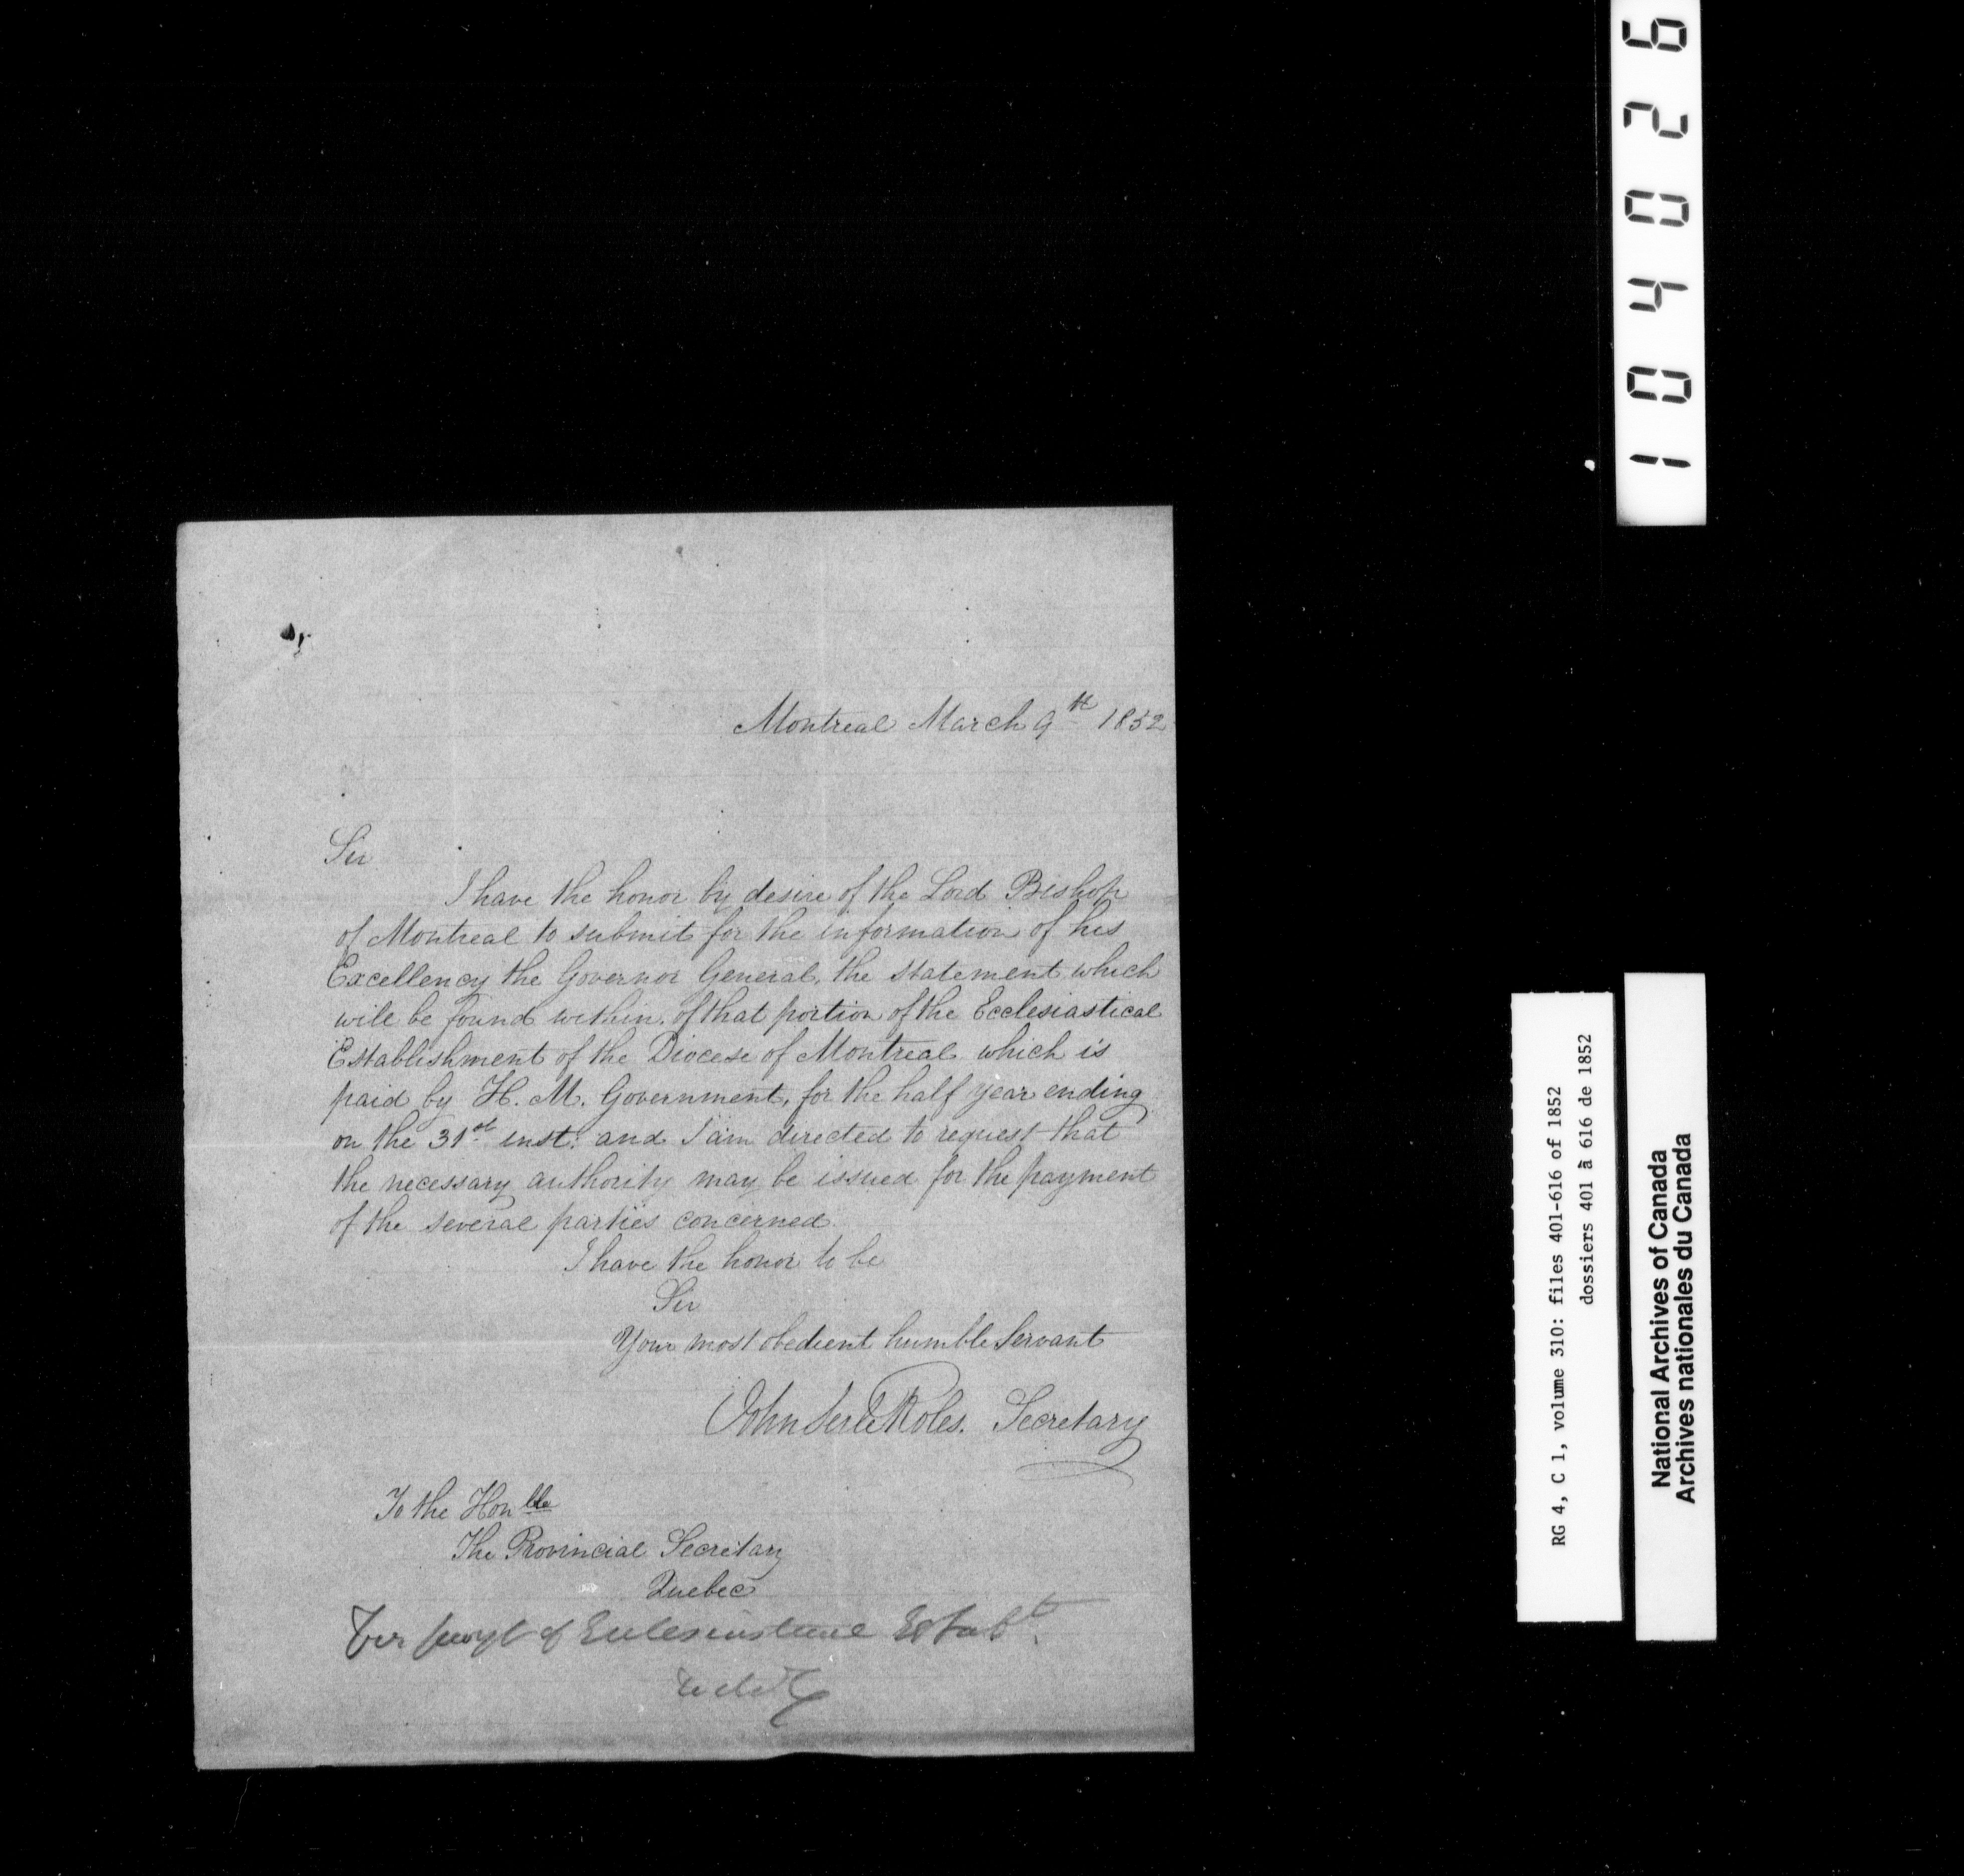 Montreal March 9th 1852
Sir
I have the honor by desire of the Lord Bishop
of Montreal to submit for the information of his
Excellency the Governor General, the statement which
will be found within, of that portion of the Ecclesiastical
Establishment of the Diocese of Montreal which is
paid by H. M. Government, for the half year ending
on the 31st inst: and I am directed to request that
the necessary authority may be issued for the payment
of the several parties concerned.
I have the honor to be
Sir
Your most obedient humble Servant
John Roles. Secretary
To the Honble
The Provincial Secretary
Quebec
of Ecclesiastical Estabt.
104026
RG 4, C 1, volume 310: files 401-616 of 1852
dossiers 401 à 616 de 1852
National Archives of Canada
Archives nationales du Canada